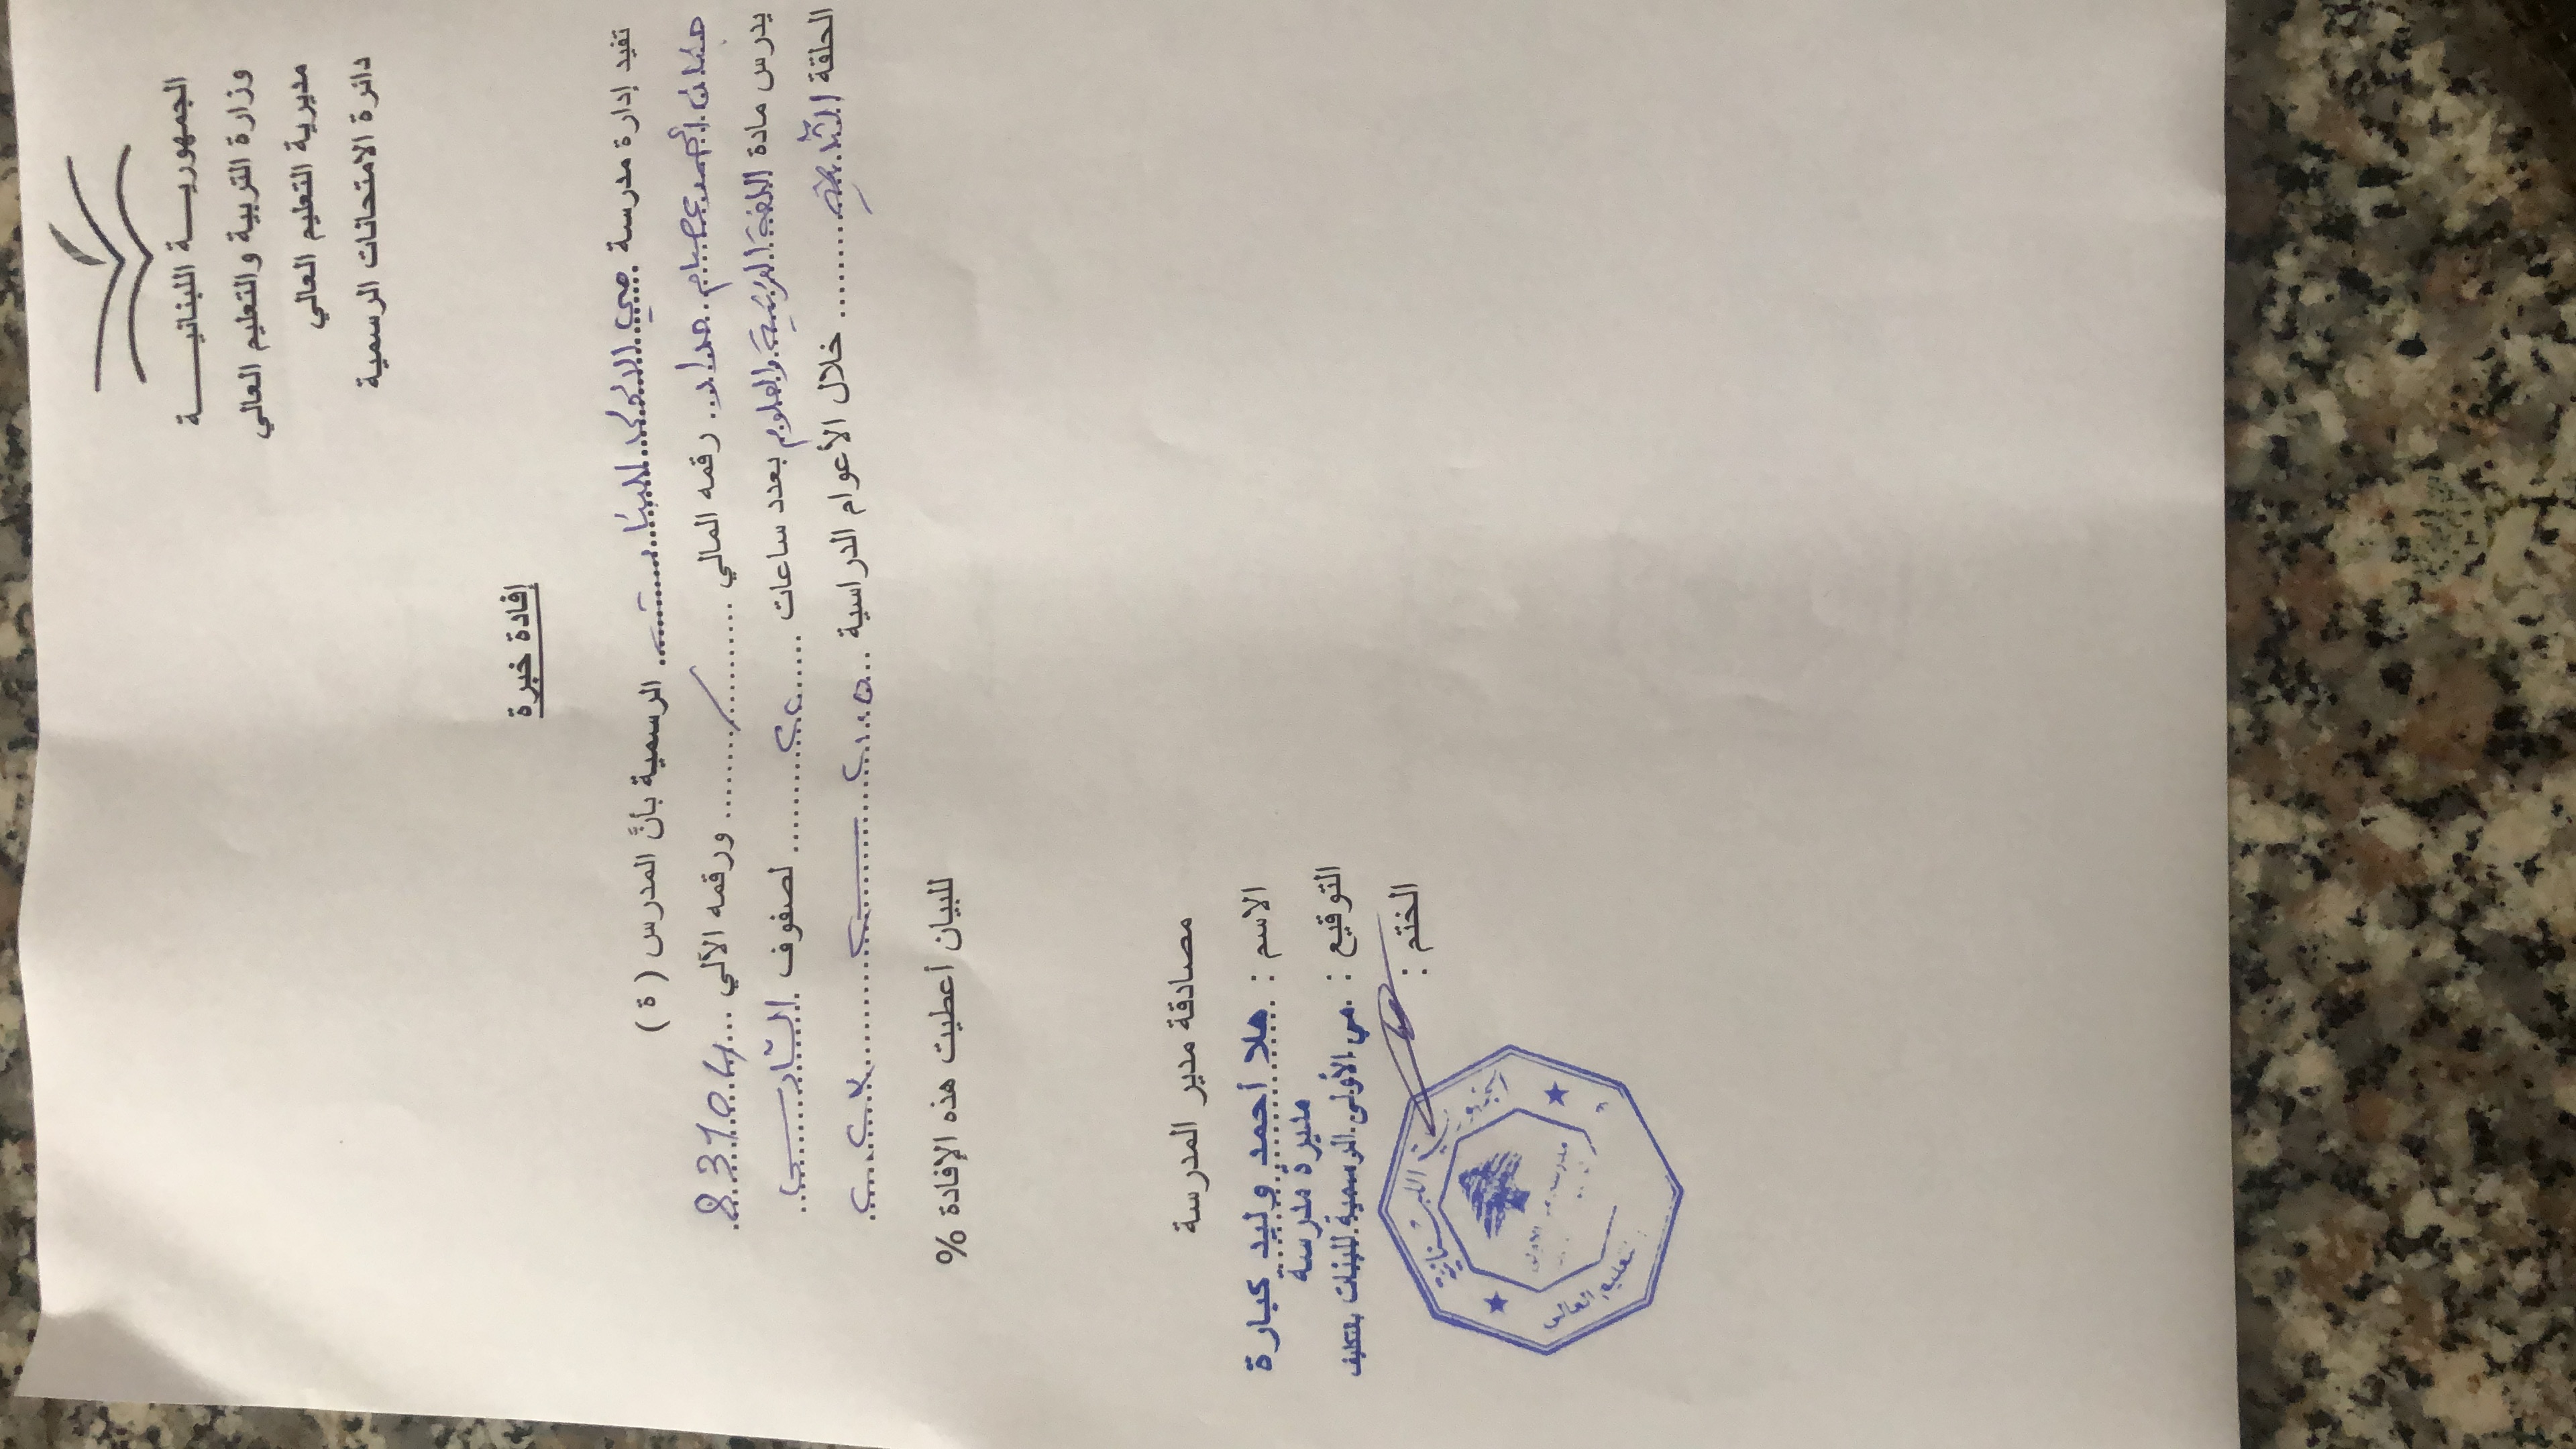 الجمهورية اللبنانية
وزارة التربية والتعليم العالي
مديرية التعليم العالي
دائرة الامتحانات الرسمية
إفادة خبرة
تفيد إدارة مدرسة مي الأولى للبنات الرسمية بأنَّ المدرس ( ة )
أحمد عصام حداد رقمه المالي / ورقمه الآلي 83504
يدرس مادة اللغة العربية والعلوم بعدد ساعات لصفوف السادس
الحلقة الثانية خلال الأعوام الدراسية
للبيان أعطيت هذه الإفادة %
مصادقة مدير المدرسة
الاسم : هلا أحمد وليد كبارة
مديرة مدرسة
التوقيع : مي الأولى الرسمية للبنات بتكليف
الختم :